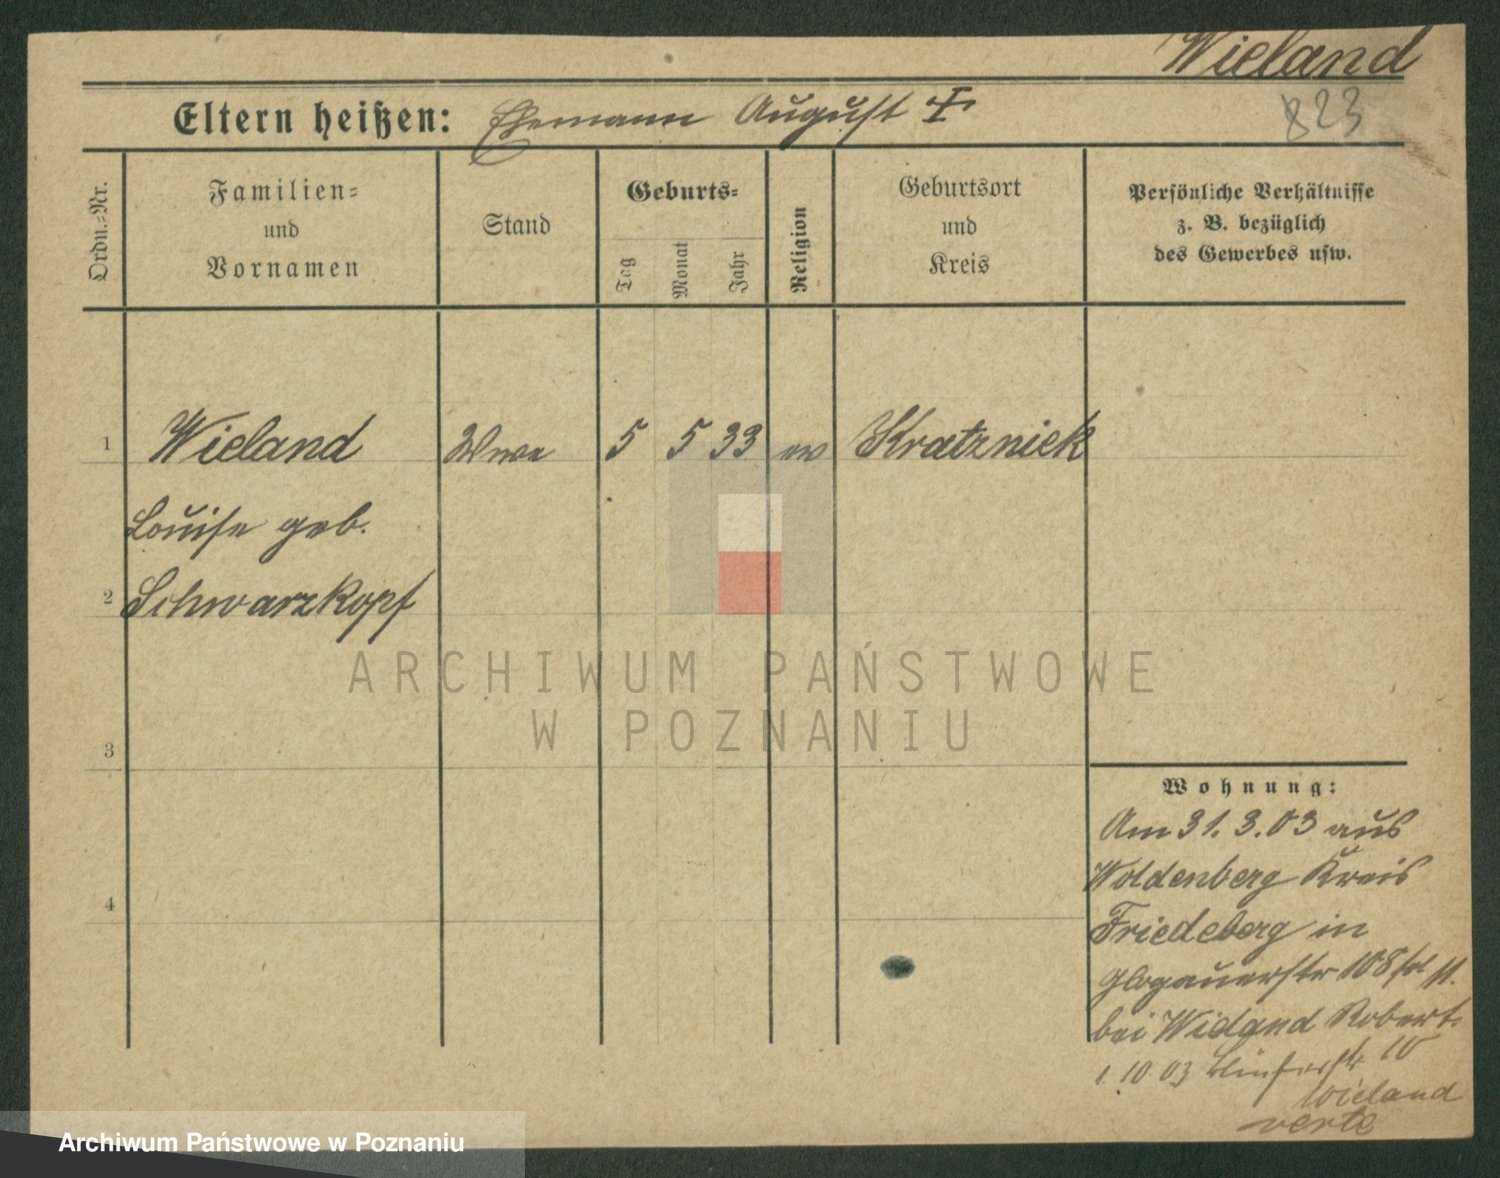 Wieland
823
Eltern heißen: Ehemann August
Ordn.-Nr.
Familien-
und
Vornamen
Stand
Geburts-
Tag
Monat
Jahr
Religion
Geburtsort
und
Kreis
Persönliche Verhältnisse
z. B. bezüglich
des Gewerbes usw.
1 Wieland Wwe 5 5 33 ev Kratznick
Louise geb.
2 Schwarzkopf
3
4
Wohnung:
Am 31. 3. 03 aus
Woldenberg Kreis
Friedeberg in
Glogauerstr 108
bei Wieland Robert
1. 10 03
Wieland
verte
ARCHIWUM PAŃSTWOWE
W POZNANIU
Archiwum Państwowe w Poznaniu